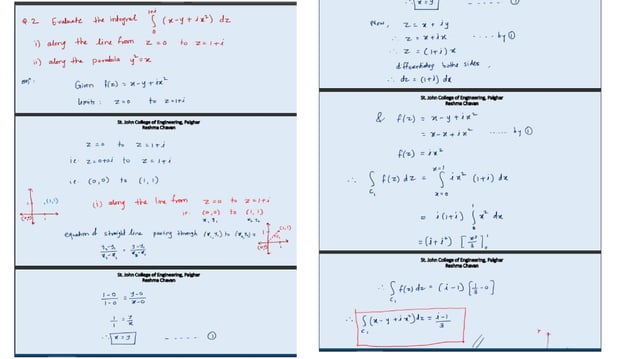 Q.2 Evaluate the integral ∫₀¹⁺ⁱ (x-y+ix²) dz
i) along the line from z=0 to z=1+i
ii) along the parabola y²=x
Given f(z) = x-y+ix²
limits: z=0 to z=1+i
St. John College of Engineering, Palghar
Reshma Chavan
z=0 to z=1+i
ie. z=0+0i to z=1+i
ie. (0,0) to (1,1)
(1,1)
(0,0)
(i) along the line from z=0 to z=1+i
ie (0,0) to (1,1)
x₁ y₁ x₂ y₂
equation of straight line passing through (x₁,y₁) to (x₂,y₂) =
(1,1)
(0,0)
St. John College of Engineering, Palghar
Reshma Chavan
(1-0)/(1-0) = (y-0)/(x-0)
1/1 = y/x
∴ x=y ----- ①
x=y
Now, z = x+iy
∴ z = x+ix ----- by ①
∴ z = (1+i)x
differentiating bothe sides,
∴ dz = (1+i) dx
St. John College of Engineering, Palghar
Reshma Chavan
& f(z) = x-y+ix²
= x-x+ix² ..... by ①
f(z) = ix²
∴ ∫C₁ f(z) dz = ∫ₓ₌₀ˣ⁼¹ ix² (1+i) dx
= i(1+i) ∫₀¹ x² dx
= (i+i²) [x³/3]₀¹
St. John College of Engineering, Palghar
Reshma Chavan
∴ ∫C₁ f(z) dz = (i-1) [1/3 - 0]
∴ ∫C₁ (x-y+ix²) dz = (i-1)/3